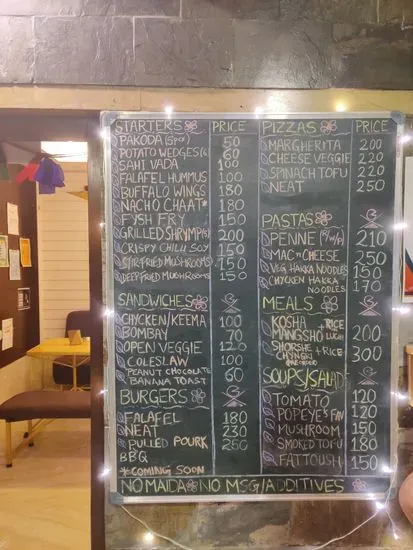 STARTERS PRICE
PAKODA (5pc) 50
POTATO WEDGES(G) 60
SAHI VADA 100
FALAFEL HUMMUS 100
BUFFALO WINGS 180
NACHO CHAAT* 180
FYSH FRY 150
GRILLED SHRYMP(6) 200
CRISPY CHILLI SOY 150
STIR FRIED MUSHROOMS 150
DEEP FRIED MUSHROOMS 150
SANDWICHES
CHYCKEN/KEEMA 100
BOMBAY 70
OPEN VEGGIE 120
COLESLAW 100
PEANUT CHOCOLATE
BANANA TOAST 60
BURGERS
FALAFEL 180
NEAT 230
PULLED POURK 250
BBQ
*COMING SOON
PIZZAS PRICE
MARGHERITA 200
CHEESE VEGGIE 220
SPINACH TOFU 220
NEAT 250
PASTAS
PENNE (R/W/P) 210
MAC N CHEESE 250
VEG HAKKA NOODLES 150
CHYCKEN HAKKA
NOODLES 170
MEALS
KOSHA + RICE
MANGSHO LUCHI 200
SHORSHE
CHYNGRI + RICE 300
SOUPS/SALAD
TOMATO 120
POPEYE'S FAV 120
MUSHROOM 150
SMOKED TOFU 180
FATTOUSH 150
NO MAIDA NO MSG/ADDITIVES